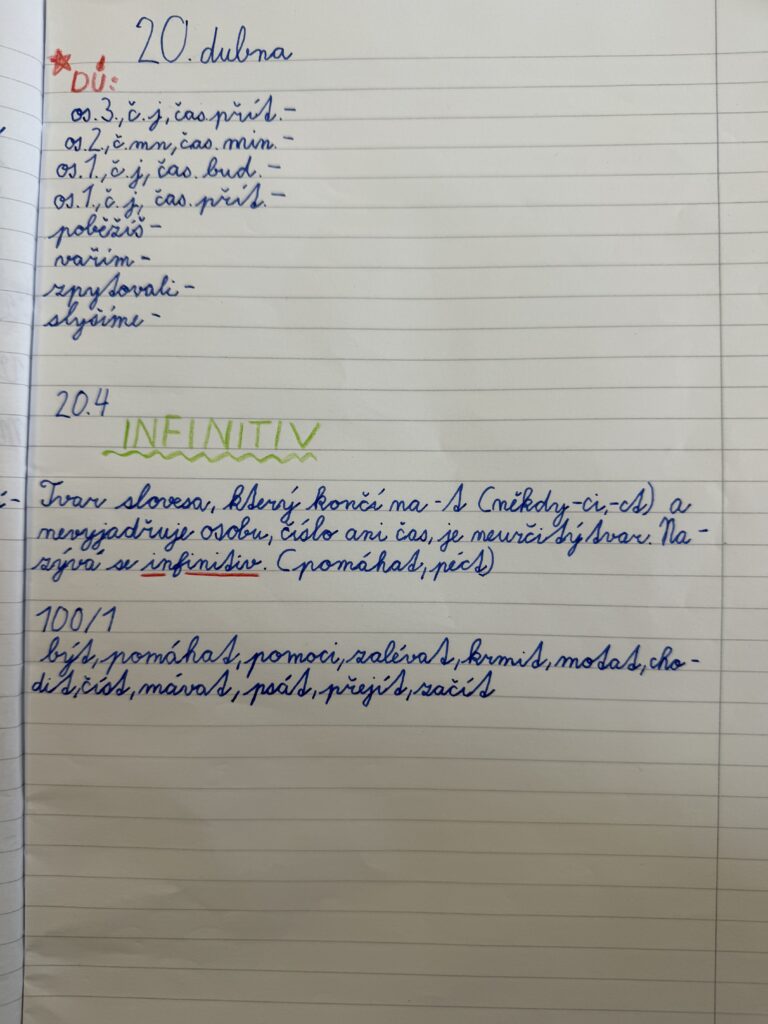 20. dubna
DÚ:
os. 3., č. j, čas. přít. -
os. 2., č. mn, čas. min. -
os. 1., č. j, čas. bud. -
os. 1., č. j, čas. přít. -
poběžíš -
vařím -
zpytovali -
slyšíme -
20.4
INFINITIV
Tvar slovesa, který končí na -t (někdy -ci, -ct) a
nevyjadřuje osobu, číslo ani čas, je neurčitý tvar. Na-
zývá se infinitiv. (pomáhat, péct)
100/1
být, pomáhat, pomoci, zalévat, krmit, motat, cho-
dit, číst, mávat, psát, přejít, začít